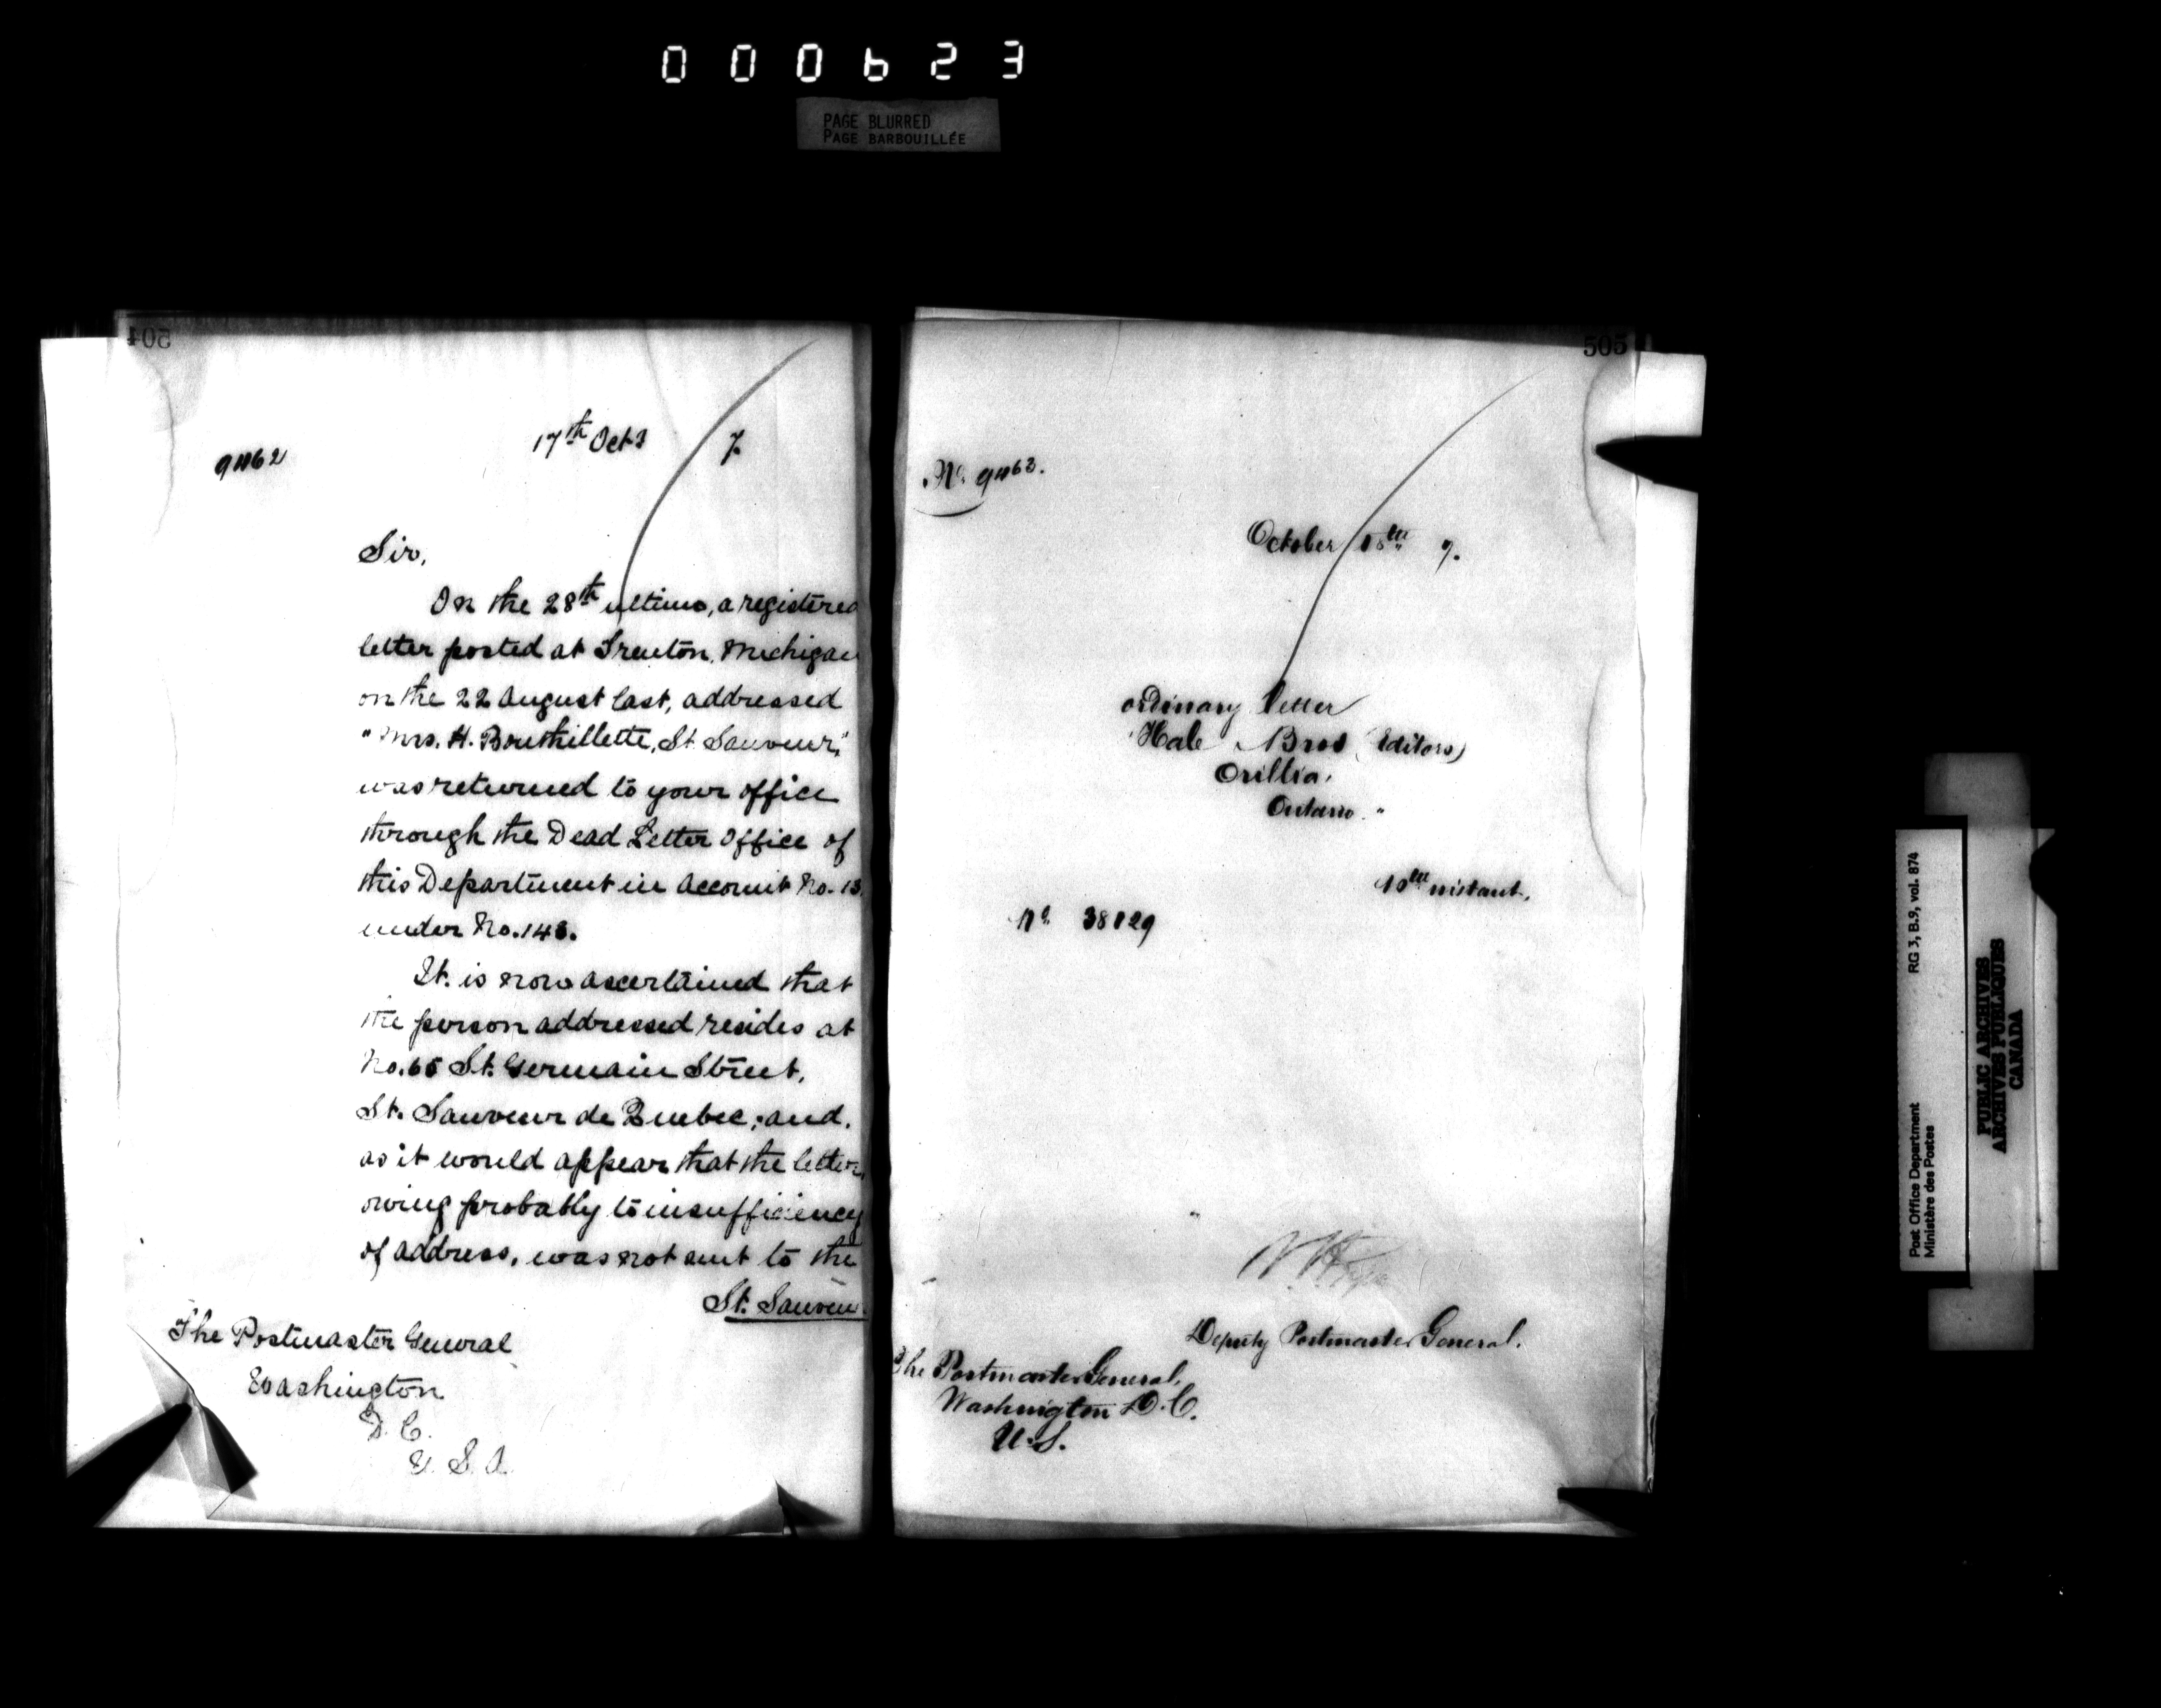 000623
PAGE BLURRED
PAGE BARBOUILLÉE
504
91162
17th Oct 7.
Sir,
On the 28th ultimo, a registered
letter posted at Trenton, Michigan
on the 22 August last, addressed
"Mrs. H. Bouthillette, St. Sauveur,"
was returned to your office
through the Dead Letter Office of
this Department in account No. 13
under No. 143.
It is now ascertained that
the person addressed resides at
No. 65 St. Germain Street,
St. Sauveur de Quebec; and,
as it would appear that the letter,
owing probably to insufficiency
of address, was not sent to the
St. Sauveu
The Postmaster General
Washington
D. C.
U. S. A.
505
No. 91163.
October 18th 7.
ordinary letter
"Hale Bros (Editors)
Orillia,
Ontario."
10th instant.
No. 38129
Deputy Postmaster General.
The Postmaster General,
Washington D. C.
U. S.
RG 3, B.9, vol. 874
Post Office Department
Ministère des Postes
PUBLIC ARCHIVES
ARCHIVES PUBLIQUES
CANADA